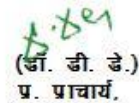 (डॉ. डी. डे.)
प्र. प्राचार्य,